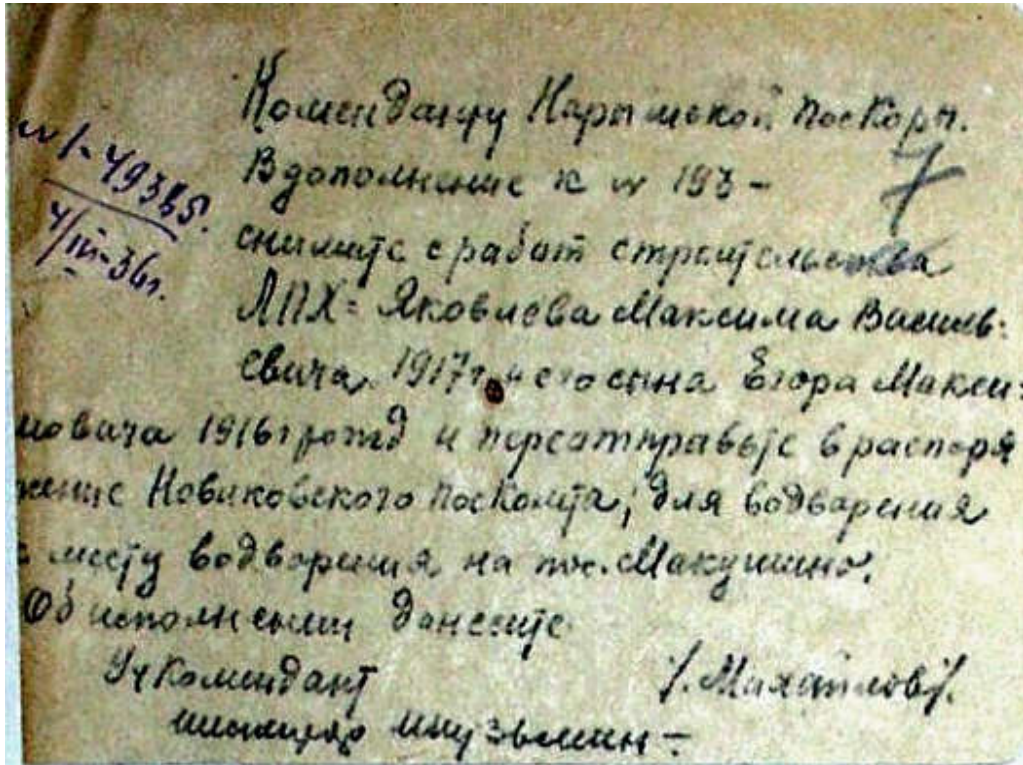 Коменданту Нарымской поскоры.
№ 1-49365.
4/III-36г.
7
В дополнение к № 193 -
снимите с работ строительства
ЛПХ = Яковлева Максима Василь=
евича, 1917г и его сына Егора Макси=
мовича 1916г рожд и переотправьте в распоря
жение Новиковского поскомта, для водворения
к месту водворения на пос. Макушино.
Об исполнении донесите
Уч комендант /. Михайлов/.